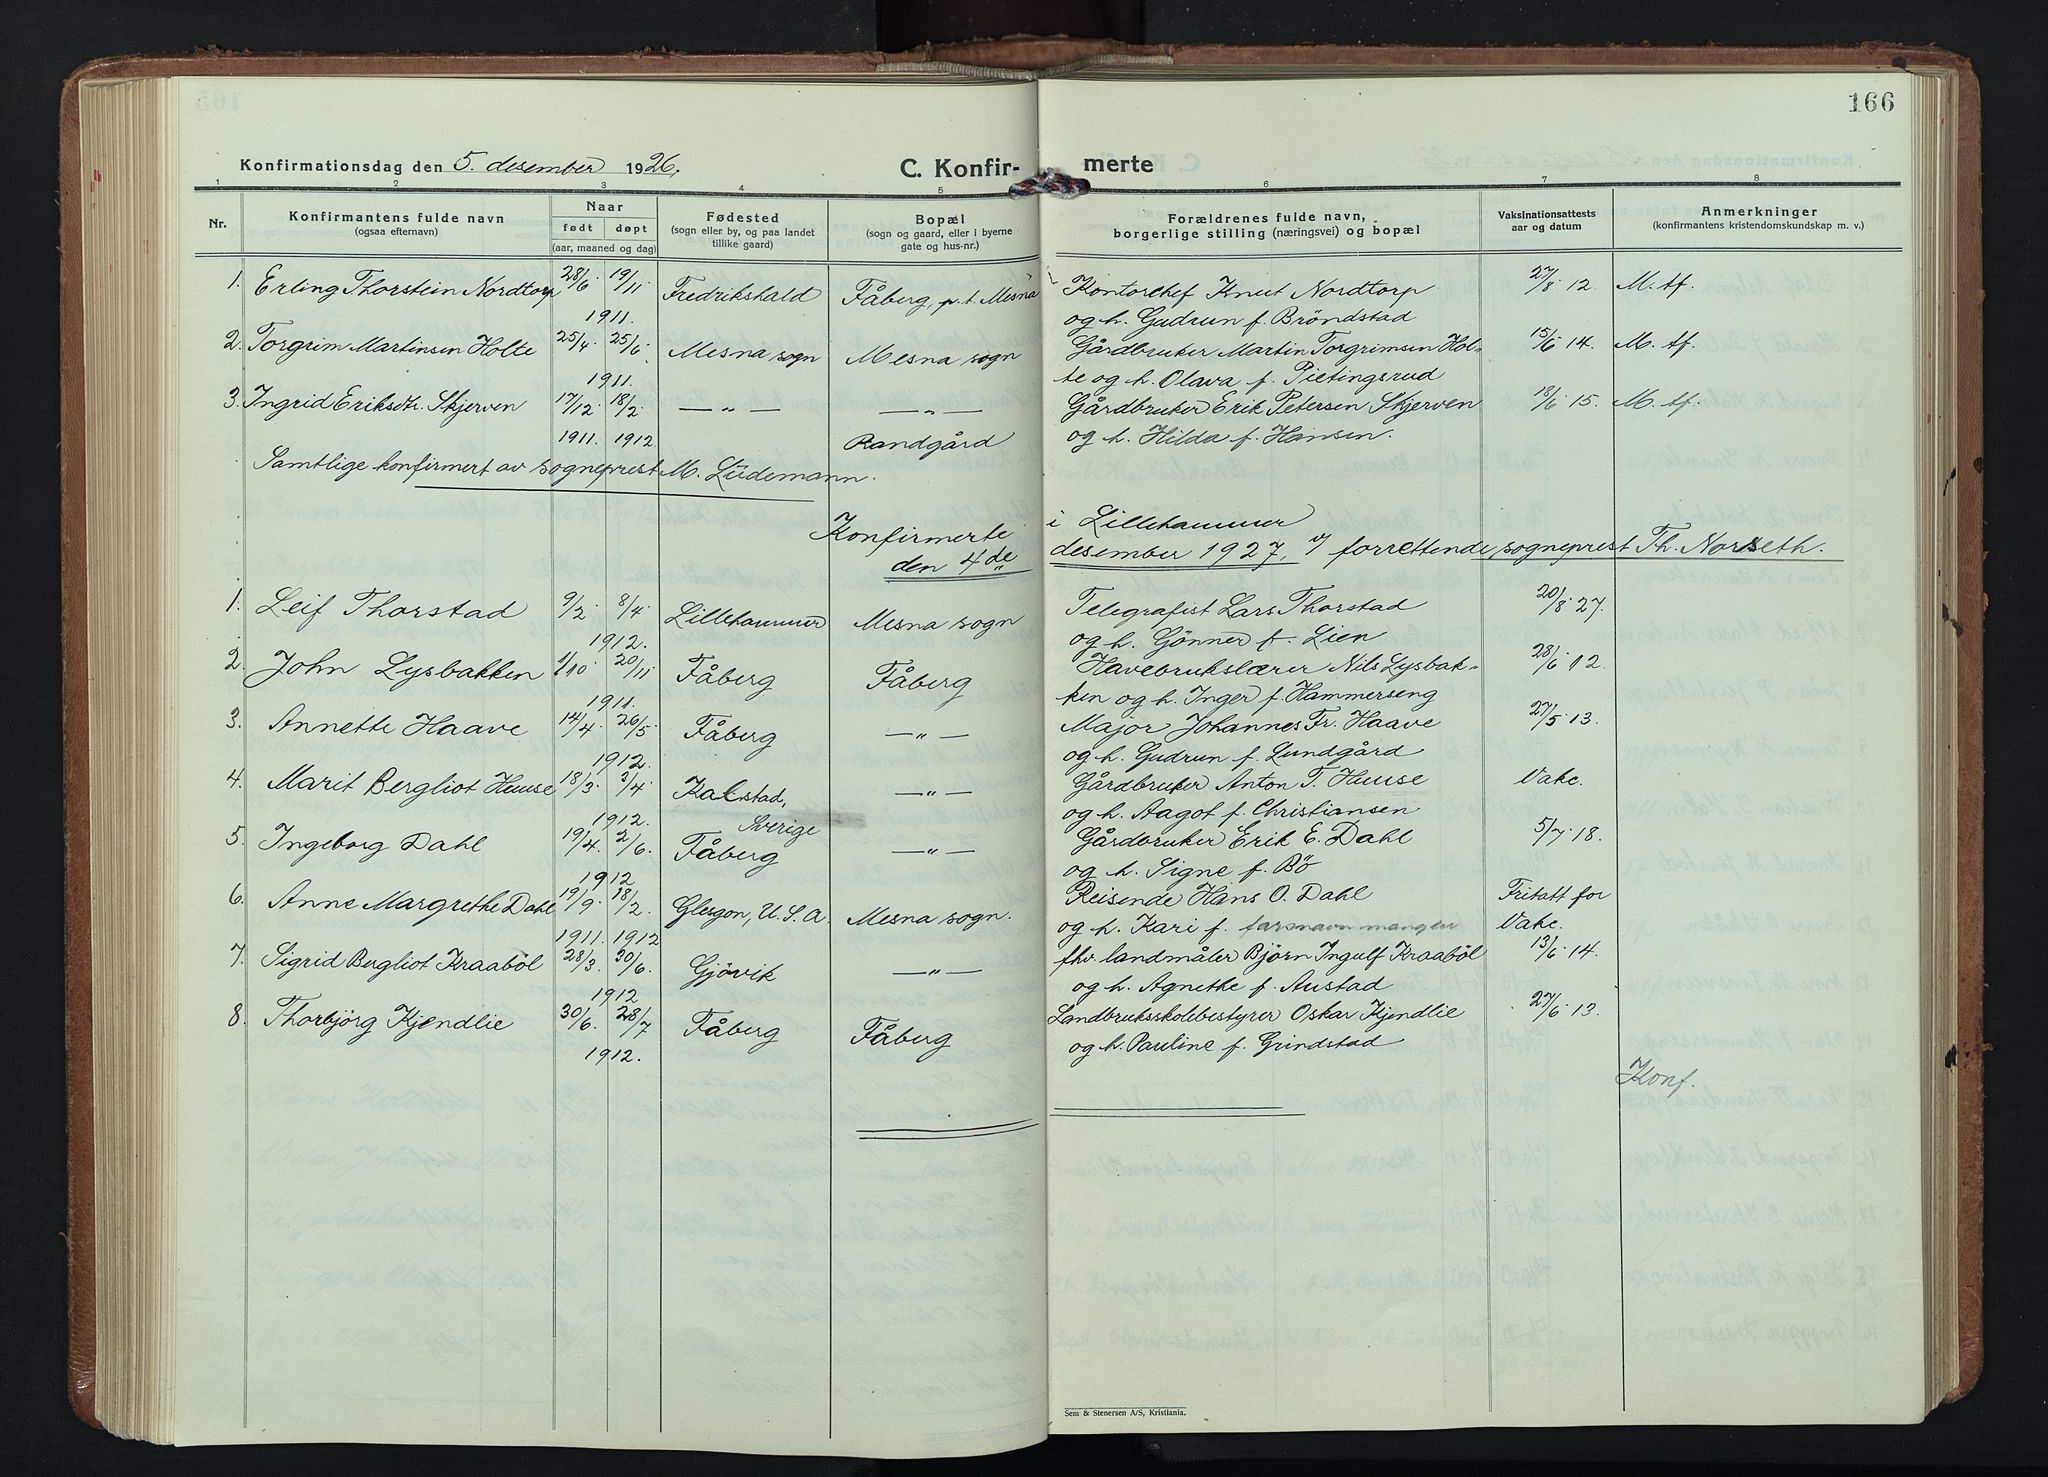 166
Konfirmationsdag den 5. desember 1926. C. Konfir- merte
1 2 3 4 5 6 7 8
Nr. Konfirmantens fulde navn (ogsaa efternavn) Naar født døpt (aar, maaned og dag) Fødested (sogn eller by, og paa landet tillike gaard) Bopæl (sogn og gaard, eller i byerne gate og hus-nr.) Forældrenes fulde navn, borgerlige stilling (næringsvei) og bopæl Vaksinationsattests aar og datum Anmerkninger (konfirmantens kristendomskundskap m. v.)
1. Erling Thorstein Nordtorp 28/6. 19/11 Fredrikshald Fåberg, p.t. Mesna Kontorchef Knut Nordtorp 27/8 12 M. tf.
1911. og h. Gudrun f. Bröndstad
2. Torgrim Martinsen Holte 25/4. 25/6. Mesna sogn Mesna sogn Gårdbruker Martin Torgrimsen Hol- 15/6 14. M. tf.
1911. te og h. Olava f. Pietingsrud
3. Ingrid Eriksdtr. Skjerven 17/12. 18/2. — " — — " — Gårdbruker Erik Petersen Skjerven 18/6 15. M. tf.
1911. 1912 Randgård og h. Hilda f. Hansen.
Samtlige konfirmert av sogneprest M. Lüdemann.
Konfirmerte i Lillehammer
den 4de desember 1927, v/ forrettende sogneprest Th. Norseth.
1. Leif Thorstad 9/2. 8/4. Lillehammer Mesna sogn Telegrafist Lars Thorstad 20/8. 27.
1912. og h. Gönner f. Lien
2. John Lysbakken 1/10 20/11 Fåberg Fåberg Havebrukslærer Nils Lysbak- 28/6 12.
1911. ken og h. Inger f. Hammerseng
3. Annette Haave 14/4. 26/5 Fåberg — " — Major Johannes Fr. Haave 27/5 13.
1912. og h. Gudrun f. Lundgård
4. Marit Bergliot Huuse 18/3 3/4 Kalstad, — " — Gårdbruker Anton T. Huuse Vake.
1912. Sverige og h. Aagot f. Christiansen
5. Ingeborg Dahl 19/4. 2/6. Fåberg — " — Gårdbruker Erik E. Dahl 5/7. 18.
1912 og h. Signe f. Bö
6. Anne Margrethe Dahl 19/9. 18/2. Glesgon, U.S.A. Mesna sogn. Reisende Hans O. Dahl Fritatt for
1911. 1912 og h. Kari f. farsnavn mangler Vake.
7. Sigrid Bergliot Kraaböl 28/3. 30/6. Gjövik — " — fhv. landmåler Björn Ingulf Kraaböl 13/6 14.
1912 og h. Agnethe f. Austad
8. Thorbjörg Kjendlie 30/6. 28/7 Fåberg Fåberg Landbruksskolebestyrer Oskar Kjendlie 27/6 13.
1912. og h. Pauline f. Grindstad
Konf.
Sem & Stenersen A/S, Kristiania.